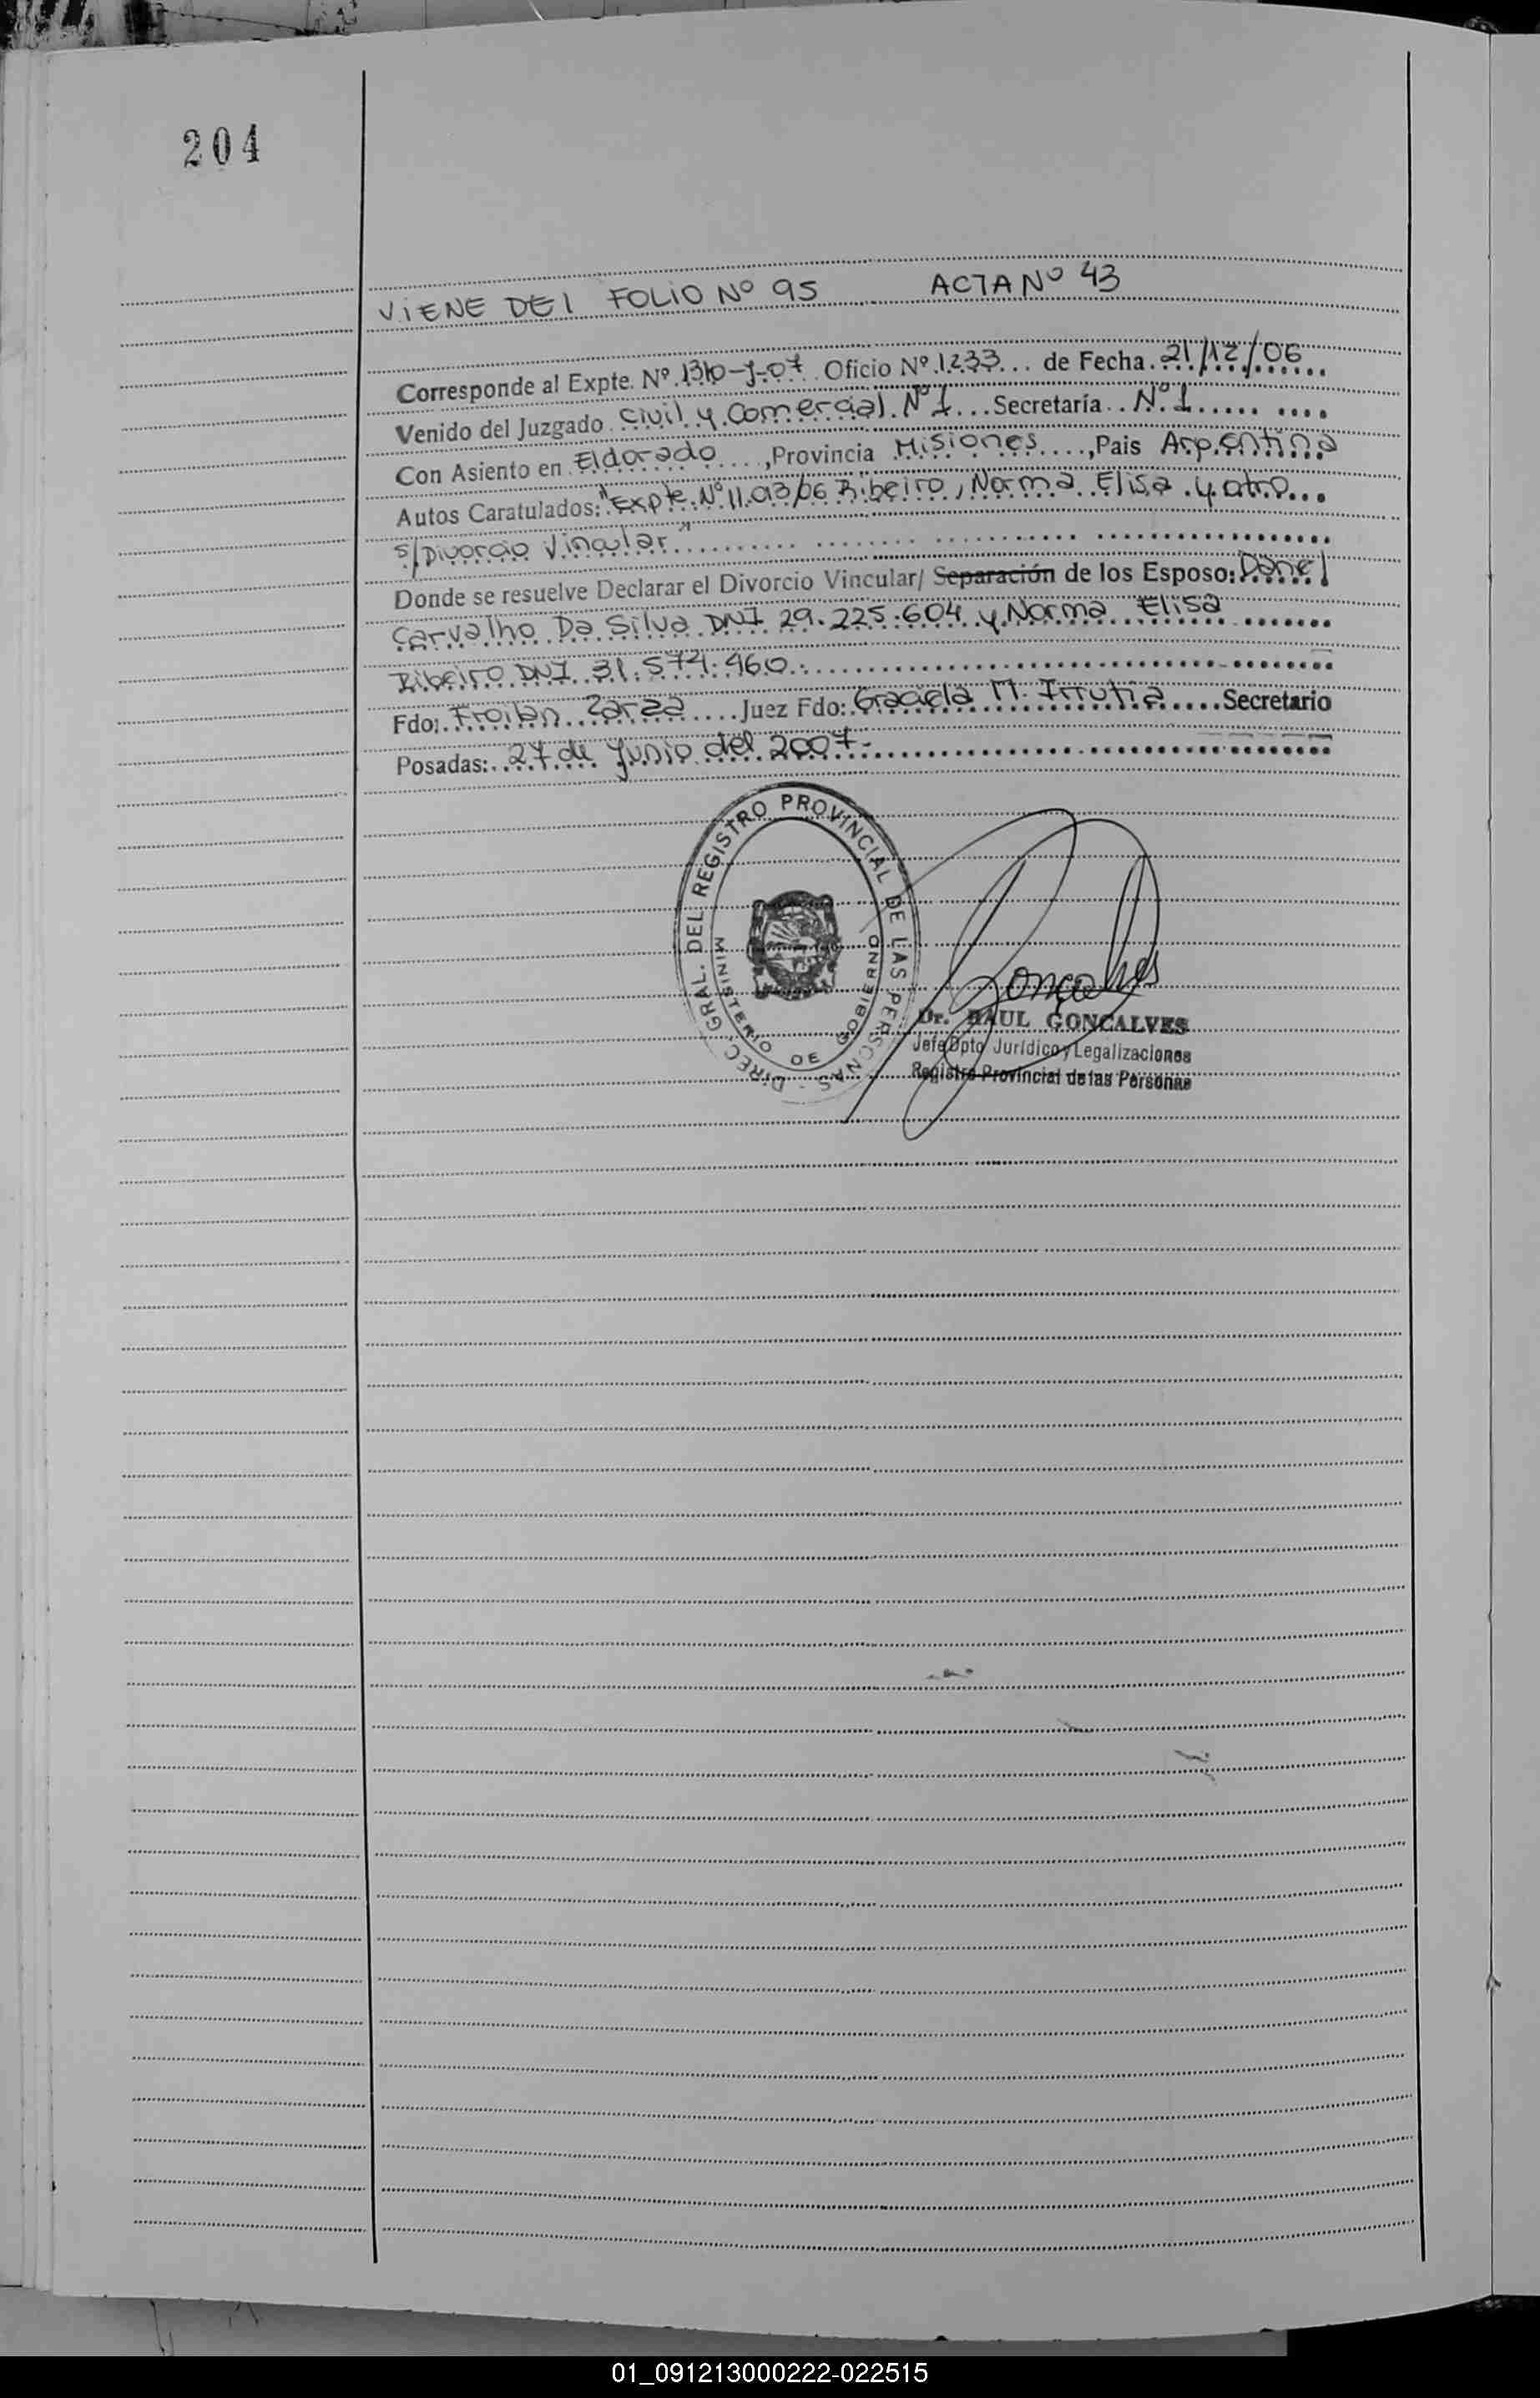 204
VIENE DEL FOLIO Nº 95 ACTA Nº 43
Corresponde al Expte. Nº 1310-J-07 Oficio Nº 1233... de Fecha. 21/12/06
Venido del Juzgado Civil y Comercial Nº 1... Secretaría.. Nº 1
Con Asiento en Eldorado ...., Provincia Misiones ...., Pais Argentina
Autos Caratulados: "Expte. Nº 11.013/06 Ribeiro, Norma Elisa y otro...
s/Divorcio Vincular"
Donde se resuelve Declarar el Divorcio Vincular/ Separación de los Esposo: Daniel
Carvalho Da Silva DNI 29.225.604 y Norma Elisa
Ribeiro DNI 31.574.460.
Fdo: Froilan Zarza .... Juez Fdo: Graciela M. Irrutia .... Secretario
Posadas: 27 de Junio del 2007.-
DIREC. GRAL. DEL REGISTRO PROVINCIAL DE LAS PERSONAS -
MINISTERIO DE GOBIERNO
Goncalves
Dr. RAUL GONCALVES
Jefe Dpto Jurídico y Legalizaciones
Registro Provincial de las Personas
01_091213000222-022515